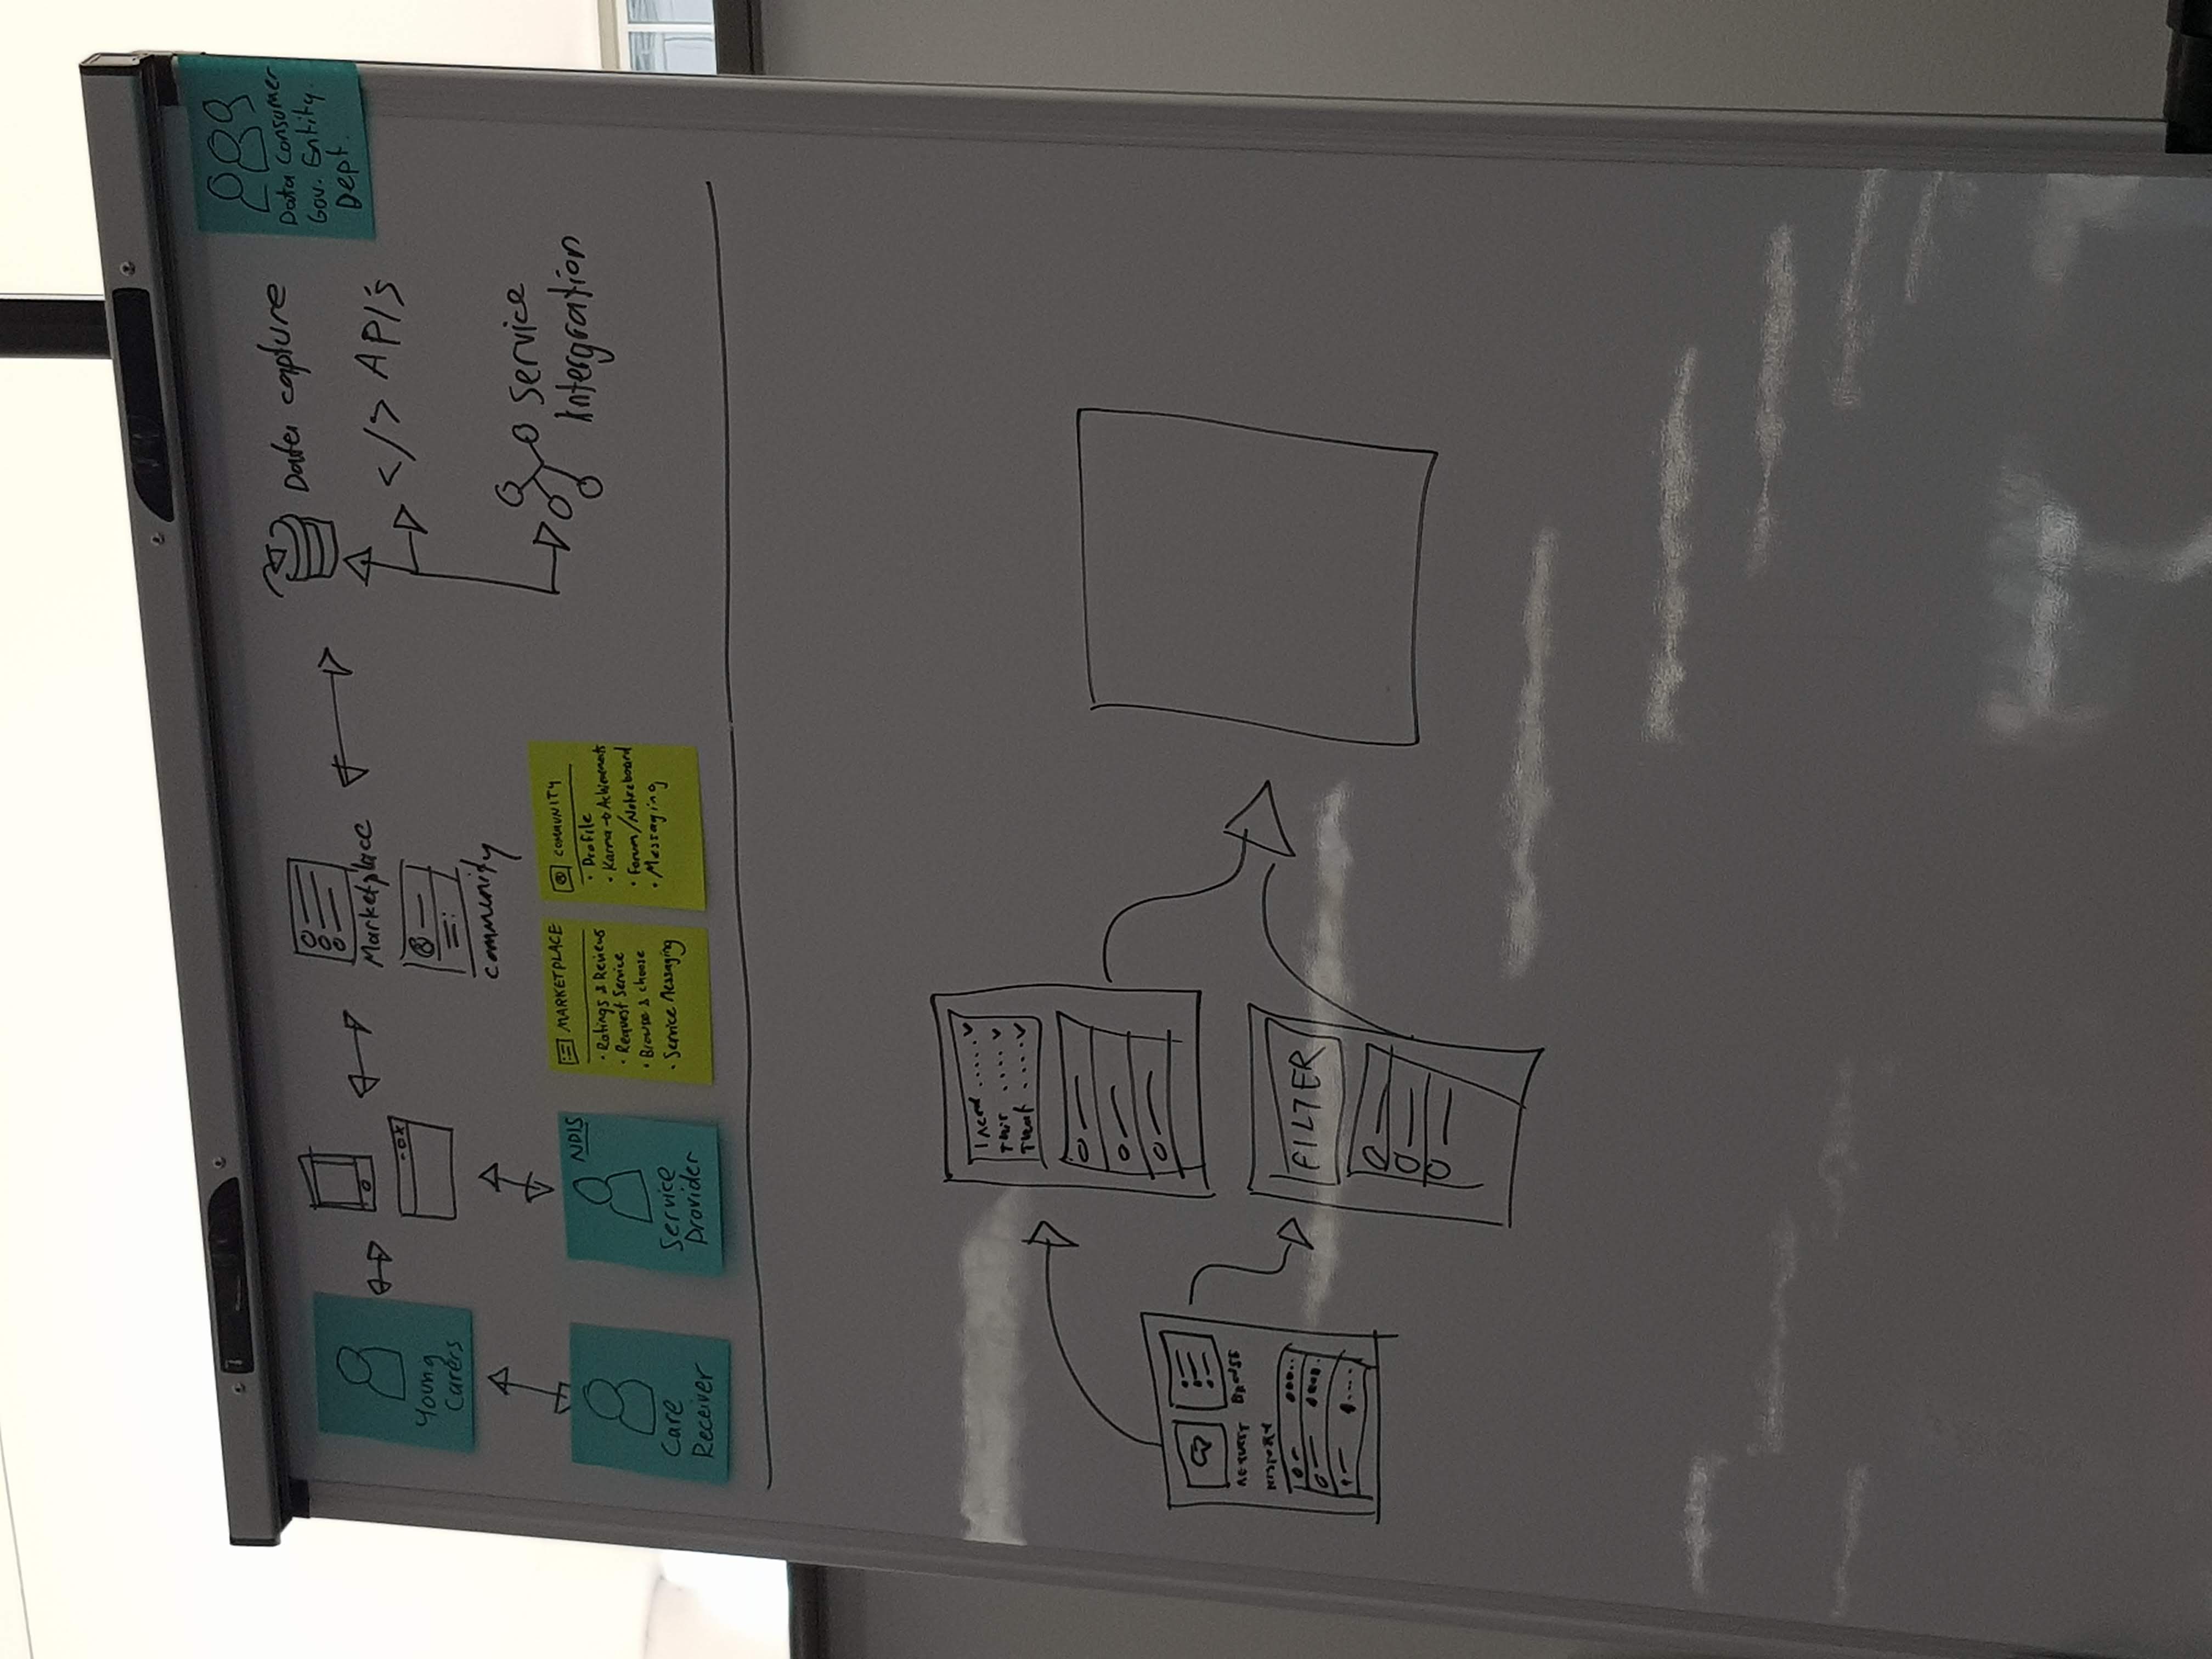 Young
Carers
Marketplace
Community
Data capture
</> API's
Service
Intergration
Data Consumer
Gov. Entity.
Dept.
Care
Receiver
NDIS
Service
Provider
MARKETPLACE
• Ratings & Reviews
• Request Service
• Browse & choose
• Service Messaging
COMMUNITY
• Profile
• Karma → Achievements
• Forum/Noticeboard
• Messaging
I need ..... ✓
This .... ✓
That .... ✓
REQUEST BROWSE
HISTORY
FILTER